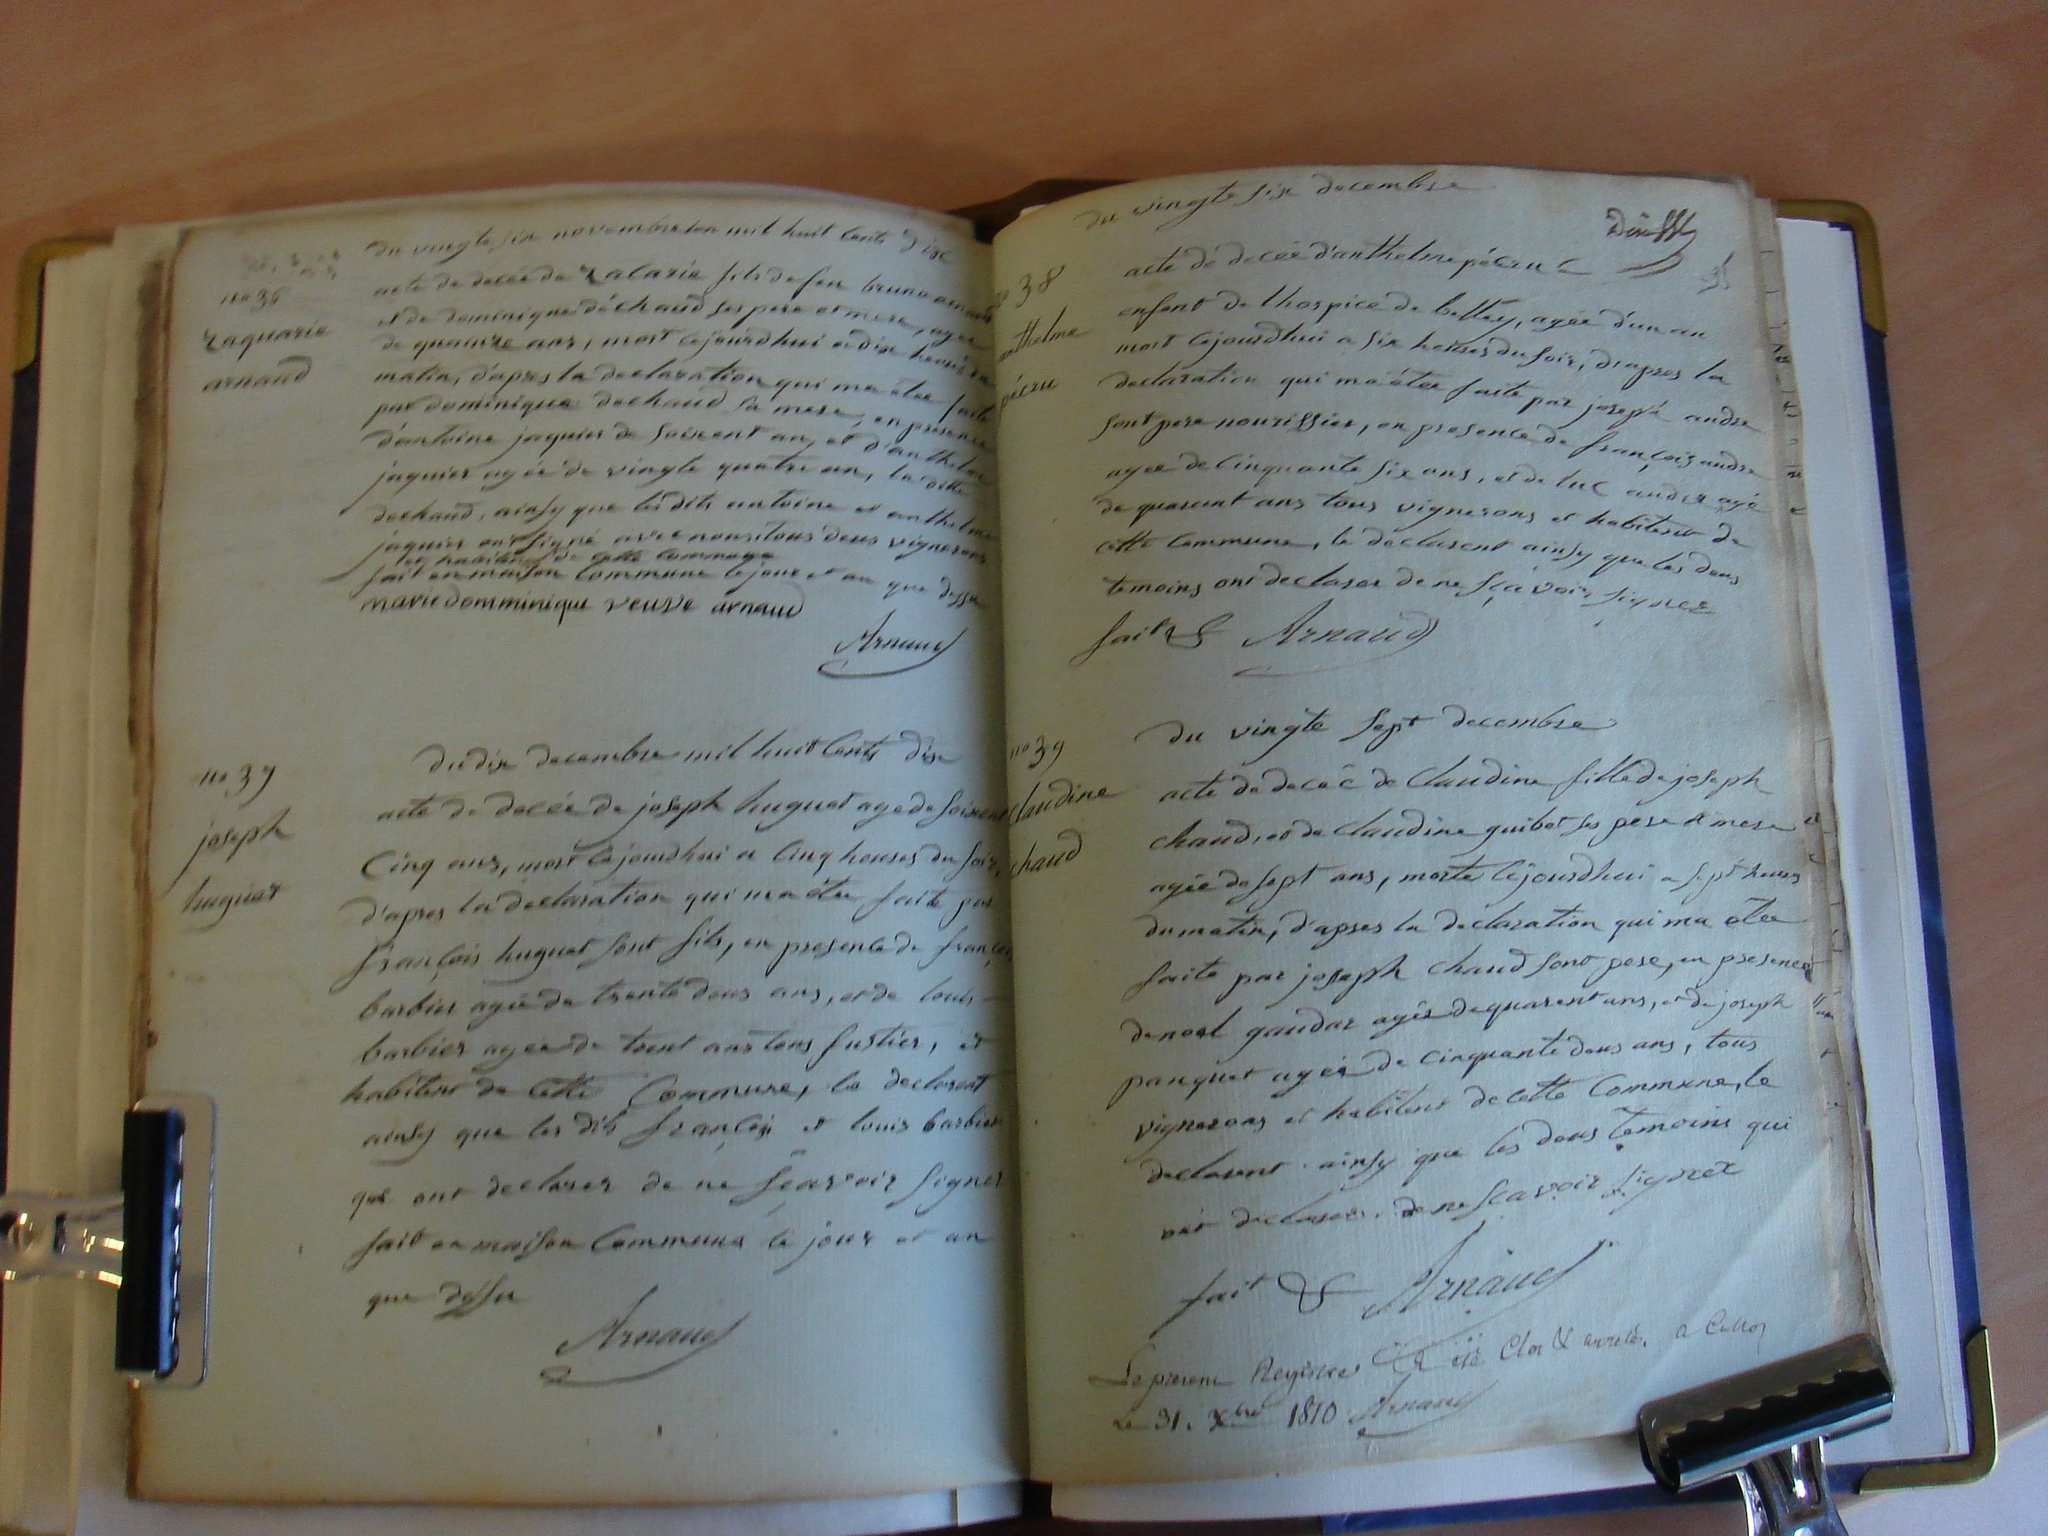 du vingte six novembre lan mil huit cents dix
no 36
zaquarie
arnaud
acte de decée de zacarie fils de feu bruno arnaud
et de dominique déchaud ses pere et mere, agée
de quainze ans, mort cejourdhui a dix heures du
matin, d'apres la declaration qui ma étée faite
par dominique dechaud sa mere, en présence
d'antoine jaquier de soixent an, et d'anthelme
jaquier agée de vingte quatre an, la ditte
dechaud, ainsy que les dits antoine et anthelme
jaquier ont signé avec nous, tous deus vignerons
et habitens de cette commune
fait en maison commune le jour et an que dessu
marie domminique veuve arnaud
Arnaud
no 37
joseph
huguet
du dix decembre mil huit cents dix
acte de decée de joseph huguet age de soixent
cinq ans, mort cejourdhui a cinq heures du soir,
d'apres la declaration qui ma étée faite par
françois huguet sont fils, en presente de françois
barbier agée de trente deus ans, et de louis
barbier agée de trent ans tous fustier, et
habitens de cette commune, le declarent
ainsy que les dits françois et louis barbier
qui ont declarer de ne sçavoir signer
fait en maison commune le jour et an
que dessu
Arnaud
du vingte six decembre
no 38
anthelme
pécru
acte de decée d'anthelme pécru
enfent de l'hospice de belley, agée d'un an
mort cejourdhui a six heures du soir, d'apres la
declaration qui ma étée faite par joseph andre
sont pere nourissier, en presence de françois andre
agee de cinquante six ans, et de luc andre agé
de quarent ans tous vignerons et habitent de
cette commune, le declarent ainsy que les deus
temoins ont declarer de ne sçavoir signer
fait & Arnaud
no 39
claudine
chaud
du vingte sept decembre
acte de decée de claudine fille de joseph
chaud, et de claudine guibet ses pere et mere
agée de sept ans, morte cejourdhui a sept heures
du matin, d'apres la declaration qui ma étee
faite par joseph chaud sont pere, en presence
de noel gaudar agée de quarent ans, et de joseph
panquet agée de cinquante deus ans, tous
vignerons et habitens de cette commune, le
declarent ainsy que les deus temoins qui
ont declarer de ne scavoir signer
fait & Arnaud
Le present Registre a été clos & arrêté a
Le 31. Xbre 1810 Arnaud